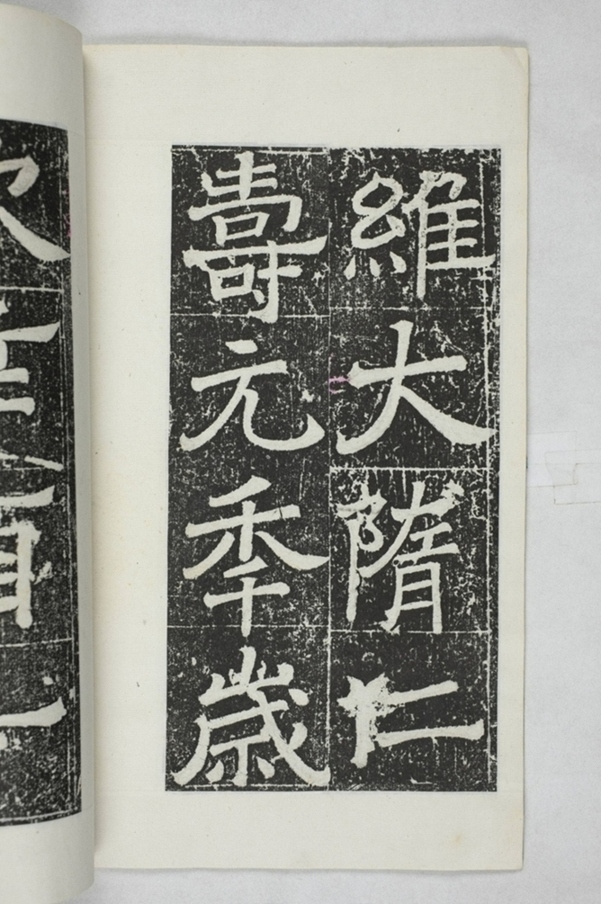 維大隋仁
壽元秊歲